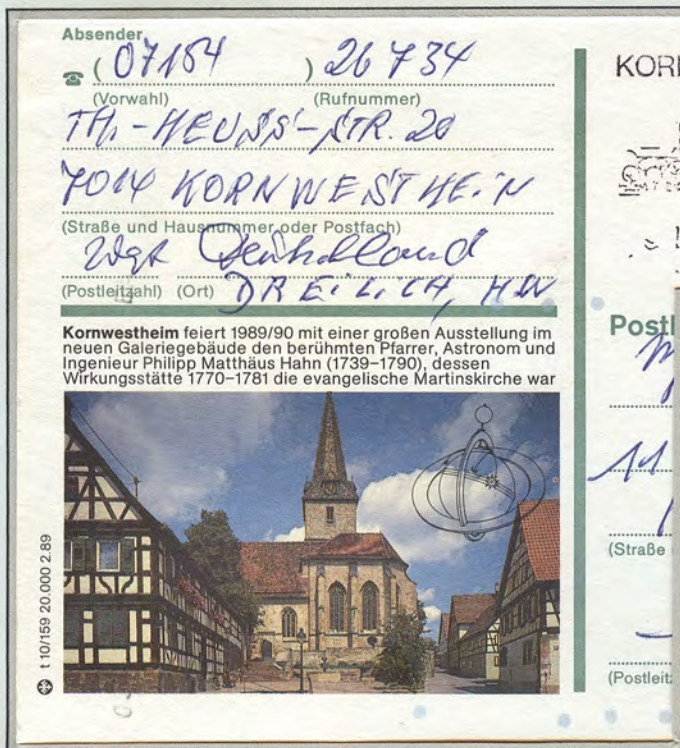 Absender
(07154) 26 734
(Vorwahl) (Rufnummer)
TH.-HEUSS-STR. 20
7014 KORNWESTHEIM
(Straße und Hausnummer oder Postfach)
Deutschland
(Postleitzahl) (Ort) DREILICH, HW
Kornwestheim feiert 1989/90 mit einer großen Ausstellung im
neuen Galeriegebäude den berühmten Pfarrer, Astronom und
Ingenieur Philipp Matthäus Hahn (1739–1790), dessen
Wirkungsstätte 1770–1781 die evangelische Martinskirche war
t 10/159 20.000 2.89
KOR
Post
11
(Straße
(Postleitz